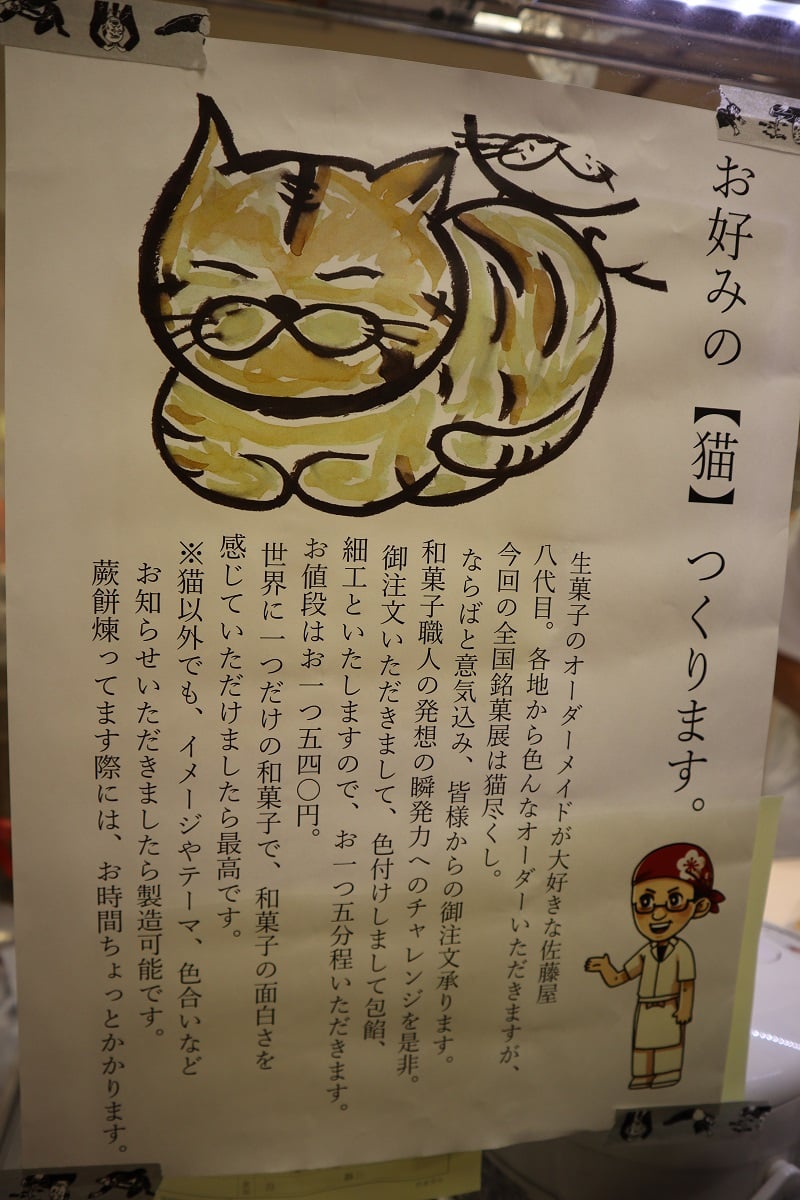 お好みの【猫】つくります。
生菓子のオーダーメイドが大好きな佐藤屋
八代目。各地から色んなオーダーいただきますが、
今回の全国銘菓展は猫尽くし。
ならばと意気込み、皆様からの御注文承ります。
和菓子職人の発想の瞬発力へのチャレンジを是非。
御注文いただきまして、色付けしまして包餡、
細工といたしますので、お一つ五分程いただきます。
お値段はお一つ五四〇円。
世界に一つだけの和菓子で、和菓子の面白さを
感じていただけましたら最高です。
※猫以外でも、イメージやテーマ、色合いなど
お知らせいただきましたら製造可能です。
蕨餅煉ってます際には、お時間ちょっとかかります。